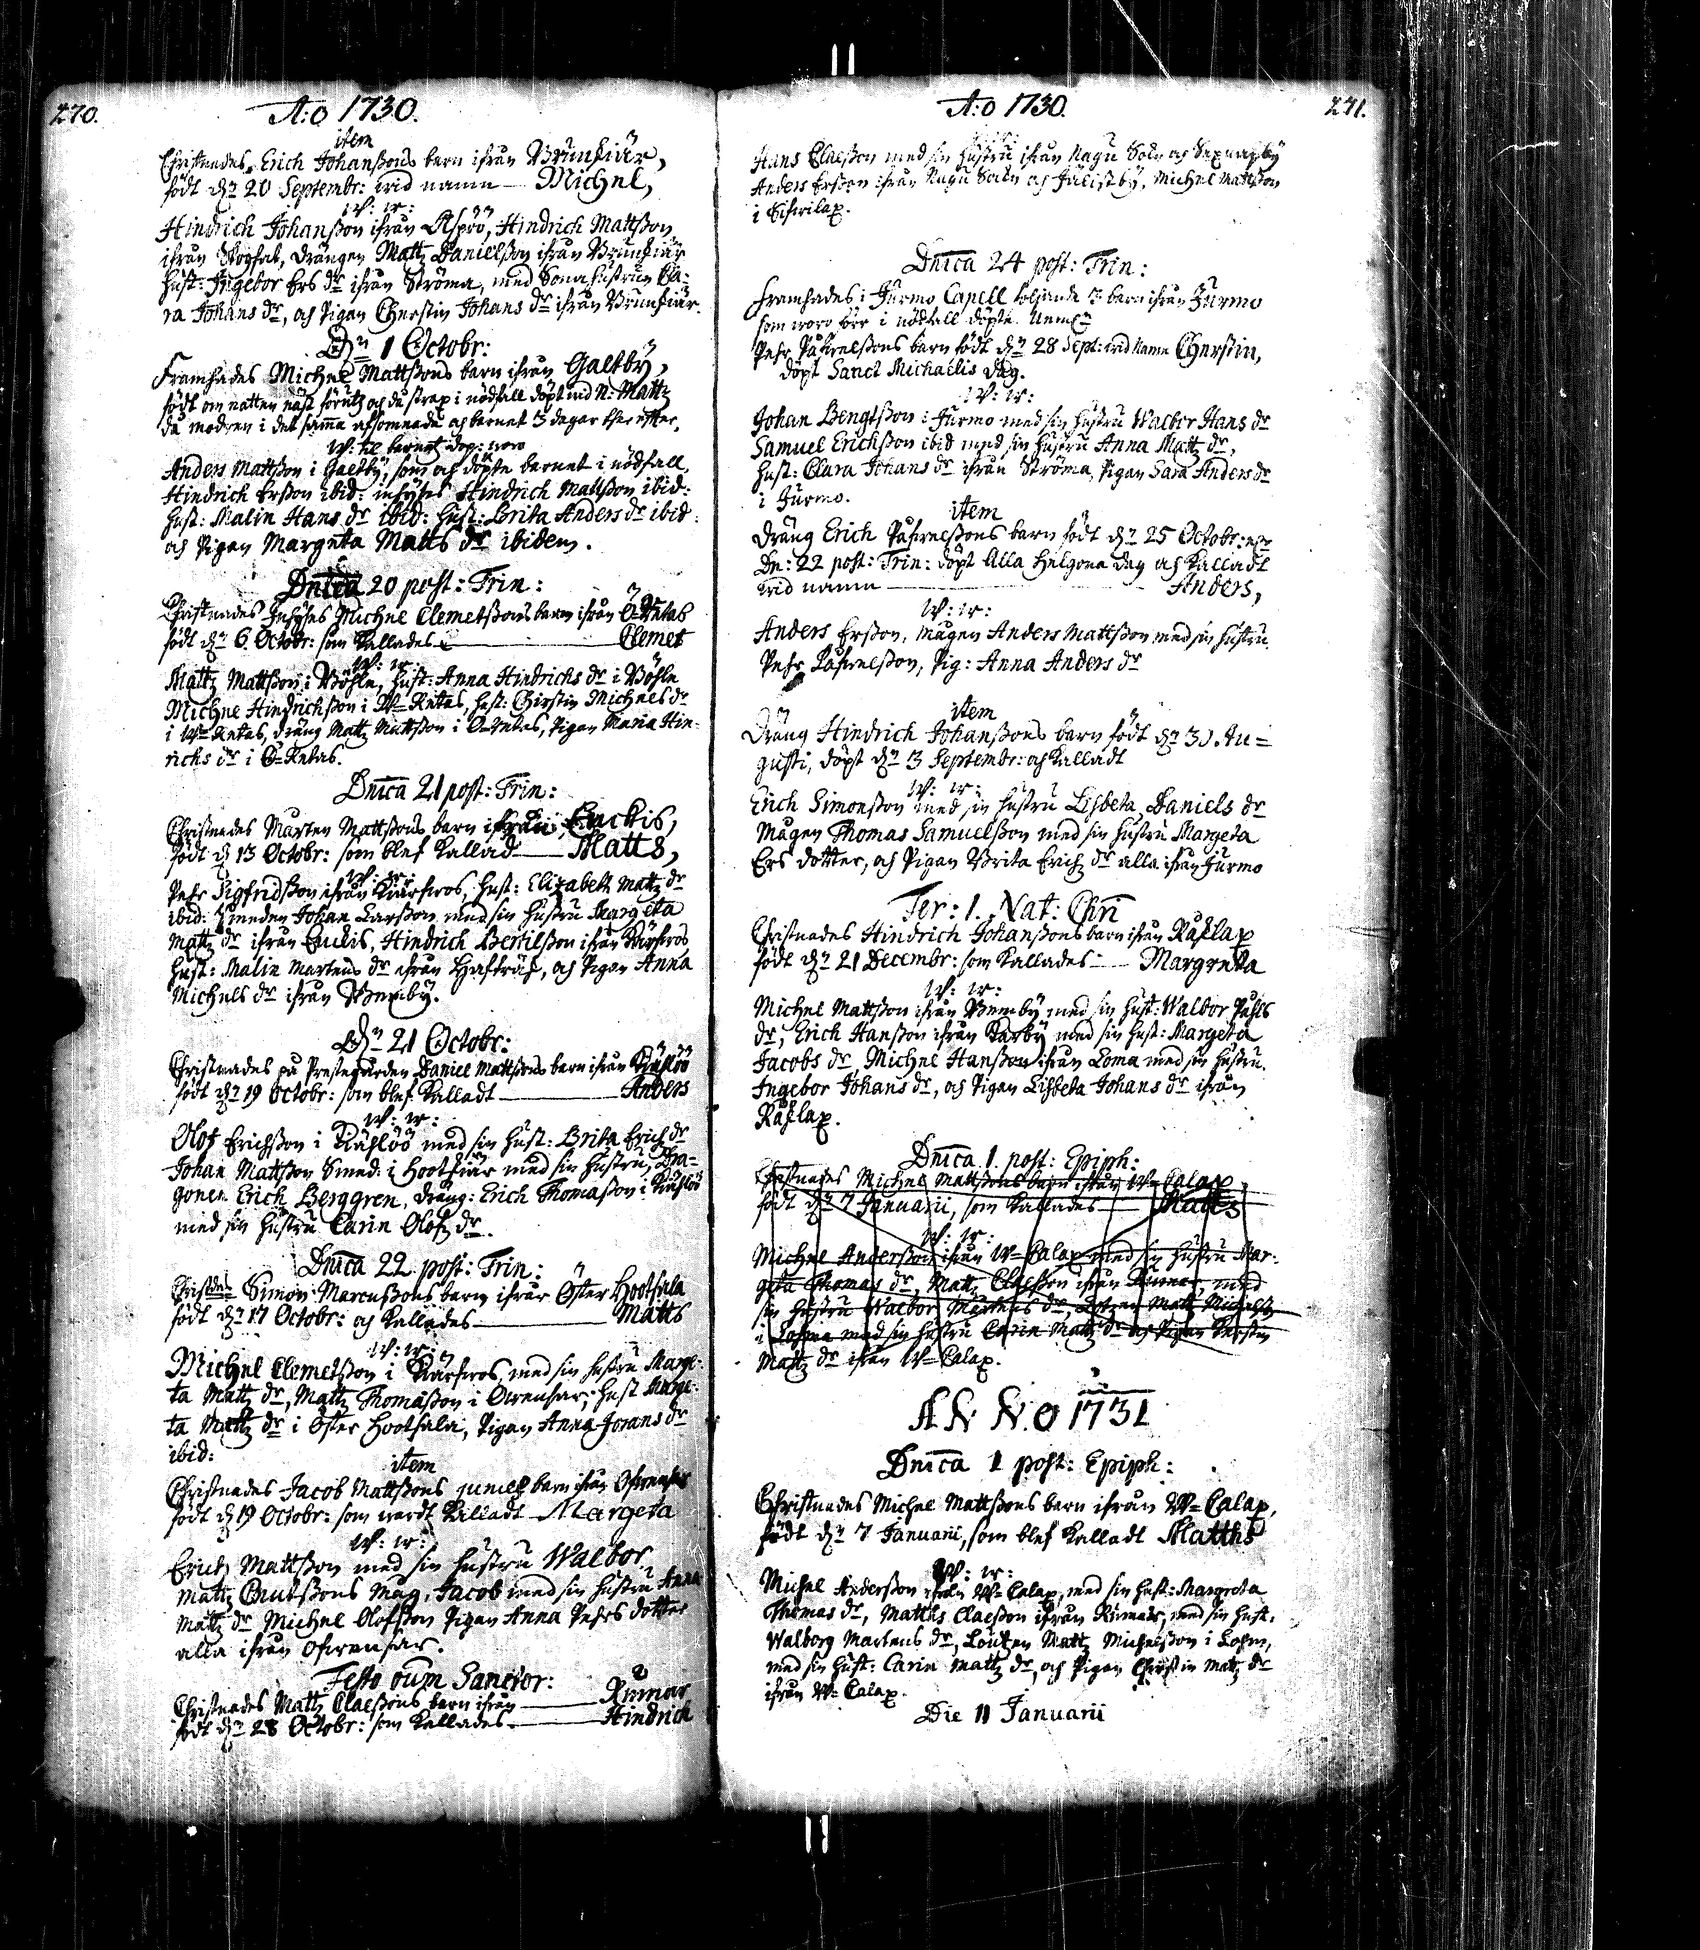 270.
A:o 1730.
item
Christnades, Erich Johanßons barn ifrån Brunskiär,
födt dn 20 Septembr: wid namn Michel,
W: w:
Hindrich Johanßon ifrån Aspöö, Hindrich Mattßon
ifrån, drängen Mattz Danielßon ifrån Brunskiär
hust: Ingebor Ers dr ifrån Ströma, med Sonahustrun Cla-
ra Johans dr, och Pigan Cherstin Johans dr ifrån Brunskiär.
Dn 1 Octobr:
Framhades Michel Mattßons barn ifrån Galtby,
födt om natten näst förutz och då strax i nödfall döpt wid N: Mattz
då modren i det samma afsomnade och barnet 3 dagar ther efter.
W: til barnetz dop: woro
Anders Mattßon i Galtby, som och döpte barnet i nödfall,
Hindrich Erßon ibid: inhyses Hindrich Mattßon ibid:
hust: Malin Hans dr ibid: hust: Brita Anders dr ibid:
och Pigan Margeta Matts dr ibidem.
Dnica 20 post: Trin:
Christnades Inhyses Michel Clemetßons barn ifrån Ö-Retais
födt dn 6 Octobr: som Kallades Clemet
W: w:
Mattz Mattßon i, hust: Anna Hindrichs dr i
Michel Hindrichßon i W-Retais, hust: Chirstin Michels dr
i W-Retais, dräng Mattz Mattßon i Ö-Retais, Pigan Maria Hin-
richs dr i Ö-Retais.
Dnica 21 post: Trin:
Christnades Mårten Mattßons barn ifrån Enckis,
födt d 13 Octobr: som blef Kallad Matts,
W: w:
Pehr Sigfridßon ifrån, hust: Elizabeth Mattz dr
ibid: Smeden Johan Larßon med sin hustru Margeta
Mattz dr ifrån Enckis, Hindrich Bertilßon ifrån
hust: Malin Martens dr ifrån, och Pigan Anna
Michels dr ifrån Wemby.
Dn 21 Octobr:
Christnades på Prestegården Daniel Mattßons barn ifrån
födt dn 19 Octobr: som blef Kalladt Anders
W: w:
Olof Erichßon i med sin hust: Brita Erich dr
Johan Mattßon Smed: i med sin hustru, Dra-
gonen Erich Berggren, dräng: Erich Thomaßon i
med sin hustru Carin Olofz dr.
Dnica 22 post: Trin:
Simon Marcußons barn ifrån Öster Hootsala
födt dn 17 Octobr: och Kallades Matts
W: w:
Michel Clemetßon i med sin hustru Marge-
ta Mattz dr, Mattz Thomaßon i, hust Marge-
ta Mattz dr i Öster Hootsala, Pigan Anna Jorans dr
ibid:
item
Christnades Jacob Mattßons barn ifrån
födt d 19 Octobr: som wardt Kalladt Margeta
W: w:
Erich Mattßon med sin hustru Walbor
Mattz Cnutßons mag, Jacob med sin hustru Anna
Mattz dr Michel Olofßon Pigan Anna Pehrs dotter
alla ifrån
Festo oum Sanctor:
Christnades Mattz Claeßons barn ifrån Rumar
födt dn 28 Octobr: som Kallades Hindrich
A:o 1730.
271.
Hans Claeßon med sin hustru ifrån Nagu Sokn och
Anders Erßon ifrån Nagu Sokn och, Michel Mattßon
i
Dnica 24 post: Trin:
Framhades i Jurmo Capell följande 3 barn ifrån Jurmo
som woro förr i nödfall döpte.
Pehr barn födt dn 28 Sept: wid Namn Cherstin,
döpt Sanct Michaelis dag.
W: w:
Johan Bengtßon i Jurmo med sin hustru Walbor Hans dr
Samuel Erichßon ibid med sin hustru Anna Mattz dr,
hust: Clara Johans dr ifrån Ströma, Pigan Sara Anders dr
i Jurmo.
item
Dräng Erich barn födt dn 25 Octobr:
Dn: 22 post: Trin: döpt Alla Helgona dag och Kalladt
wid namn Anders,
W: w:
Anders Erßon, mågen Anders Mattßon med sin hustru
Pehr, Pig: Anna Anders dr
item
Dräng Hindrich Johanßons barn födt dn 30 Au-
gusti, döpt dn 3 Septembr: och Kalladt
W: w:
Erich Simonßon med sin hustru Lisbeta Daniels dr
Mågen Thomas Samuelßon med sin hustru Margeta
Ers dotter, och Pigan Brita Erichz dr alla ifrån Jurmo
Fer: 1. Nat: Chri
Christnades Hindrich Johanßons barn ifrån Råslax
födt dn 21 Decembr: som Kallades Margreta
W: w:
Michel Mattßon ifrån Wemby med sin hust: Walbor Påhls
dr, Erich Hanßon ifrån Karby med sin hust: Margeta
Jacobs dr, Michel Hanßon ifrån Loma med sin hustru
Ingebor Johans dr, och Pigan Lisbeta Johans dr ifrån
Råslax.
Dnica 1. post: Epiph:
Christnades Michel Mattßons barn ifrån W-Calax,
födt dn 7 Januarii, som Kallades Matts
W: w:
Michel Anderßon ifrån W-Calax med sin hustru Mar-
geta Thomas dr, Mattz Claeßon ifrån Rumar, med
sin hustru Walbor Martens dr, Lotzen Mattz Michelß
i Lohm med sin hustru Carin Mattz dr och Pigan Kerstin
Mattz dr ifrån W-Calax.
ANNO 1731
Dnica 1 post: Epiph:
Christnades Michel Mattßons barn ifrån W-Calax,
födt dn 7 Januarii, som blef Kalladt Matths
W: w:
Michel Anderßon ifrån W-Calax, med sin hust: Margreta
Thomas dr, Matths Claeßon ifrån Rumar, med sin hust:
Walborg Martens dr, Loutzen Mattz Michelßon i Lohm,
med sin hust: Carin Mattz dr, och Pigan Chirstin Matz dr
ifrån W-Calax.
Die 11 Januarii